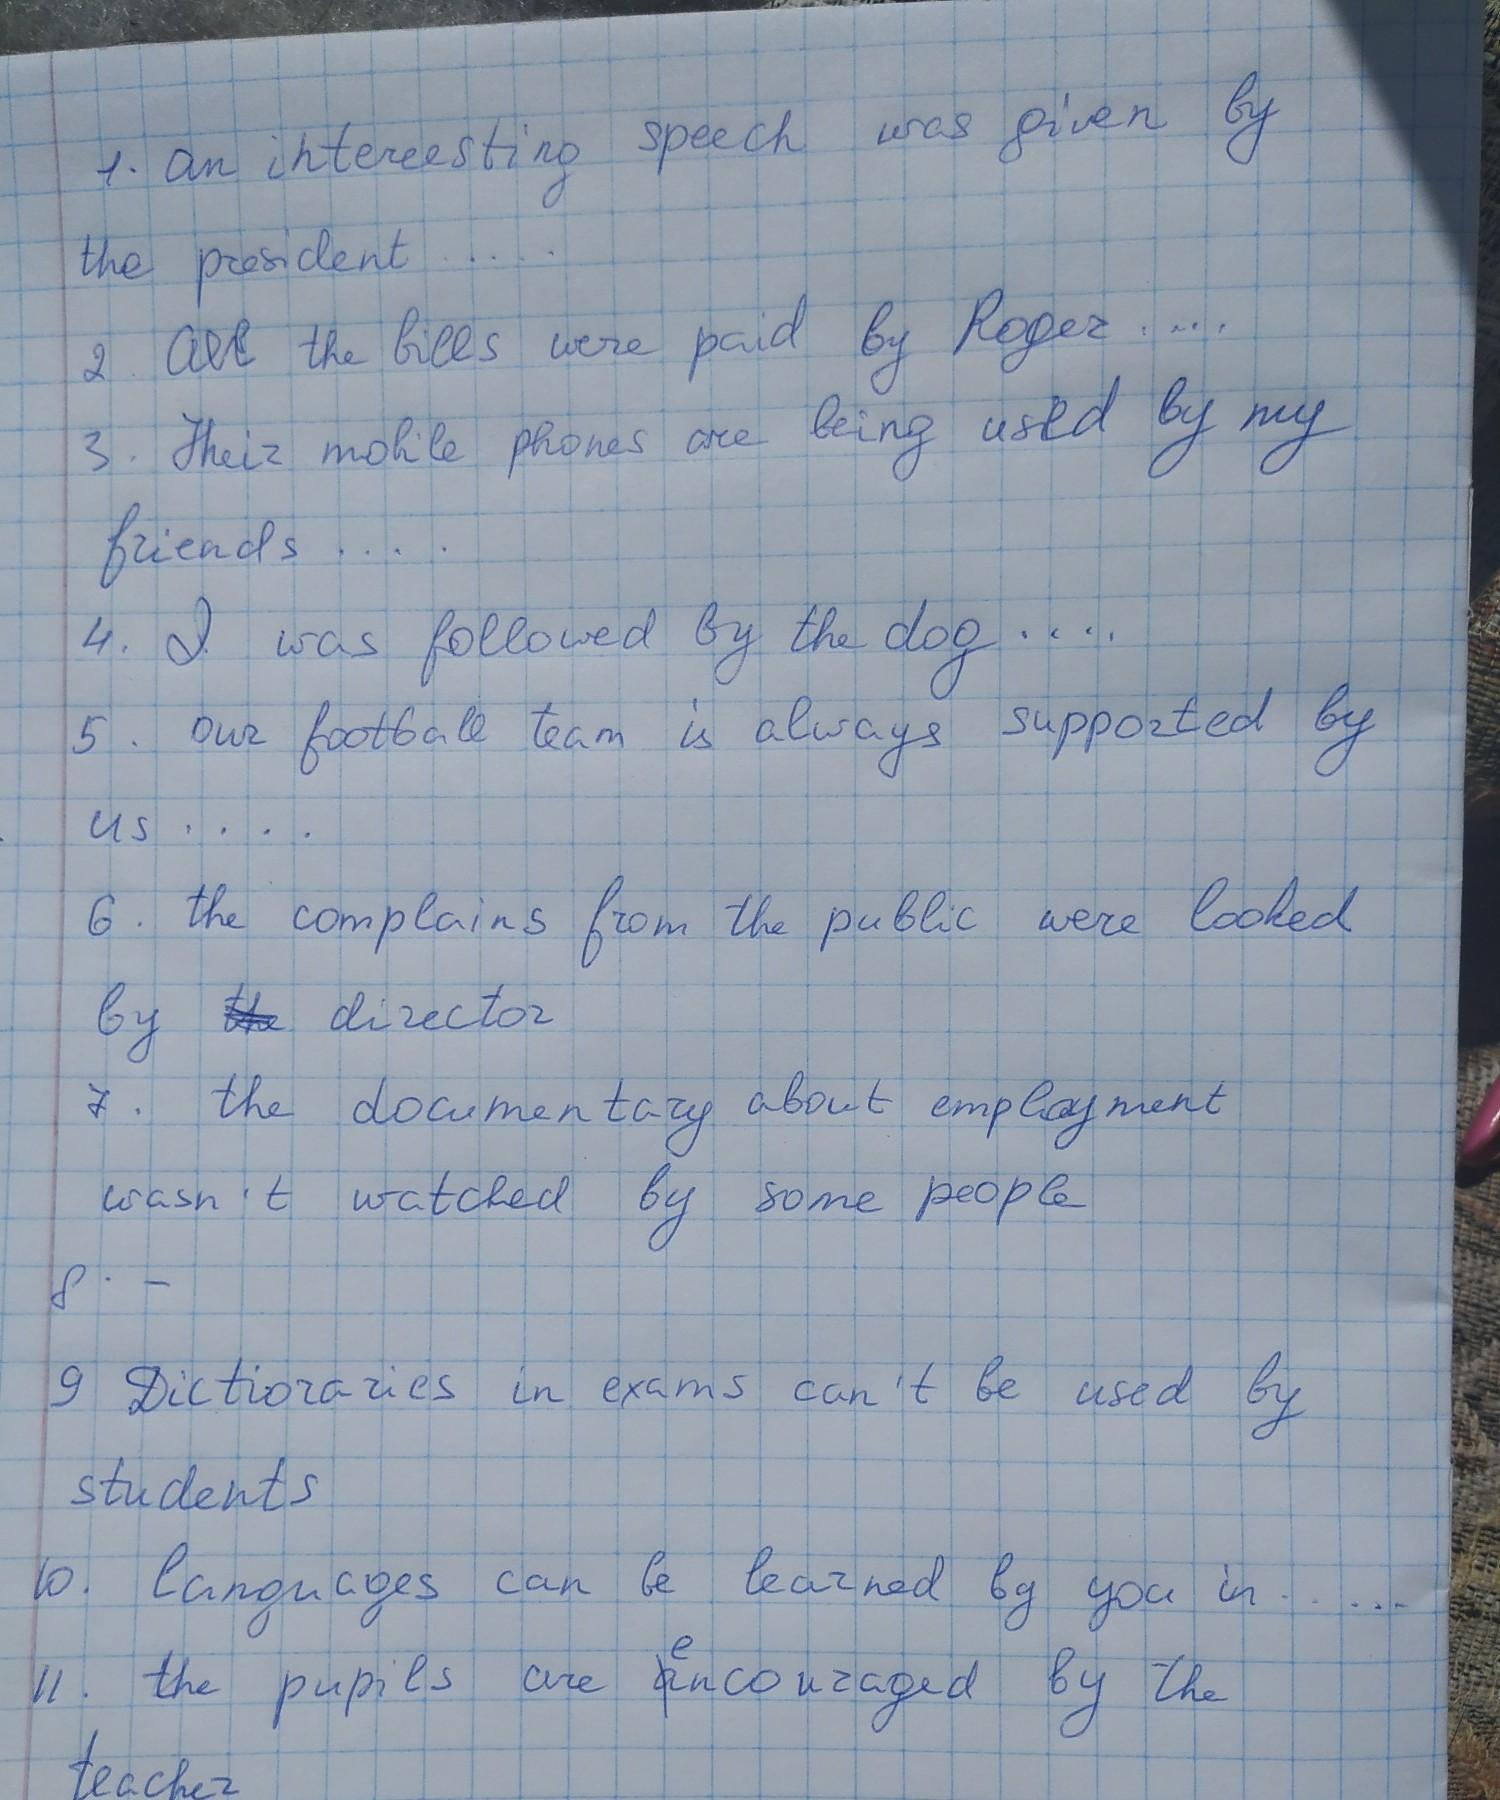 1. an interesting speech was given by
the president .....
2. All the bills were paid by Roger ....
3. Their mobile phones are being used by my
friends ....
4. I was followed by the dog ....
5. our football team is always supported by
us ....
6. the complains from the public were looked
by the director
7. the documentary about employment
wasn't watched by some people
8. -
9 Dictioraries in exams can't be used by
students
10. languages can be learned by you in .....
11. the pupils are encouraged by the
teacher